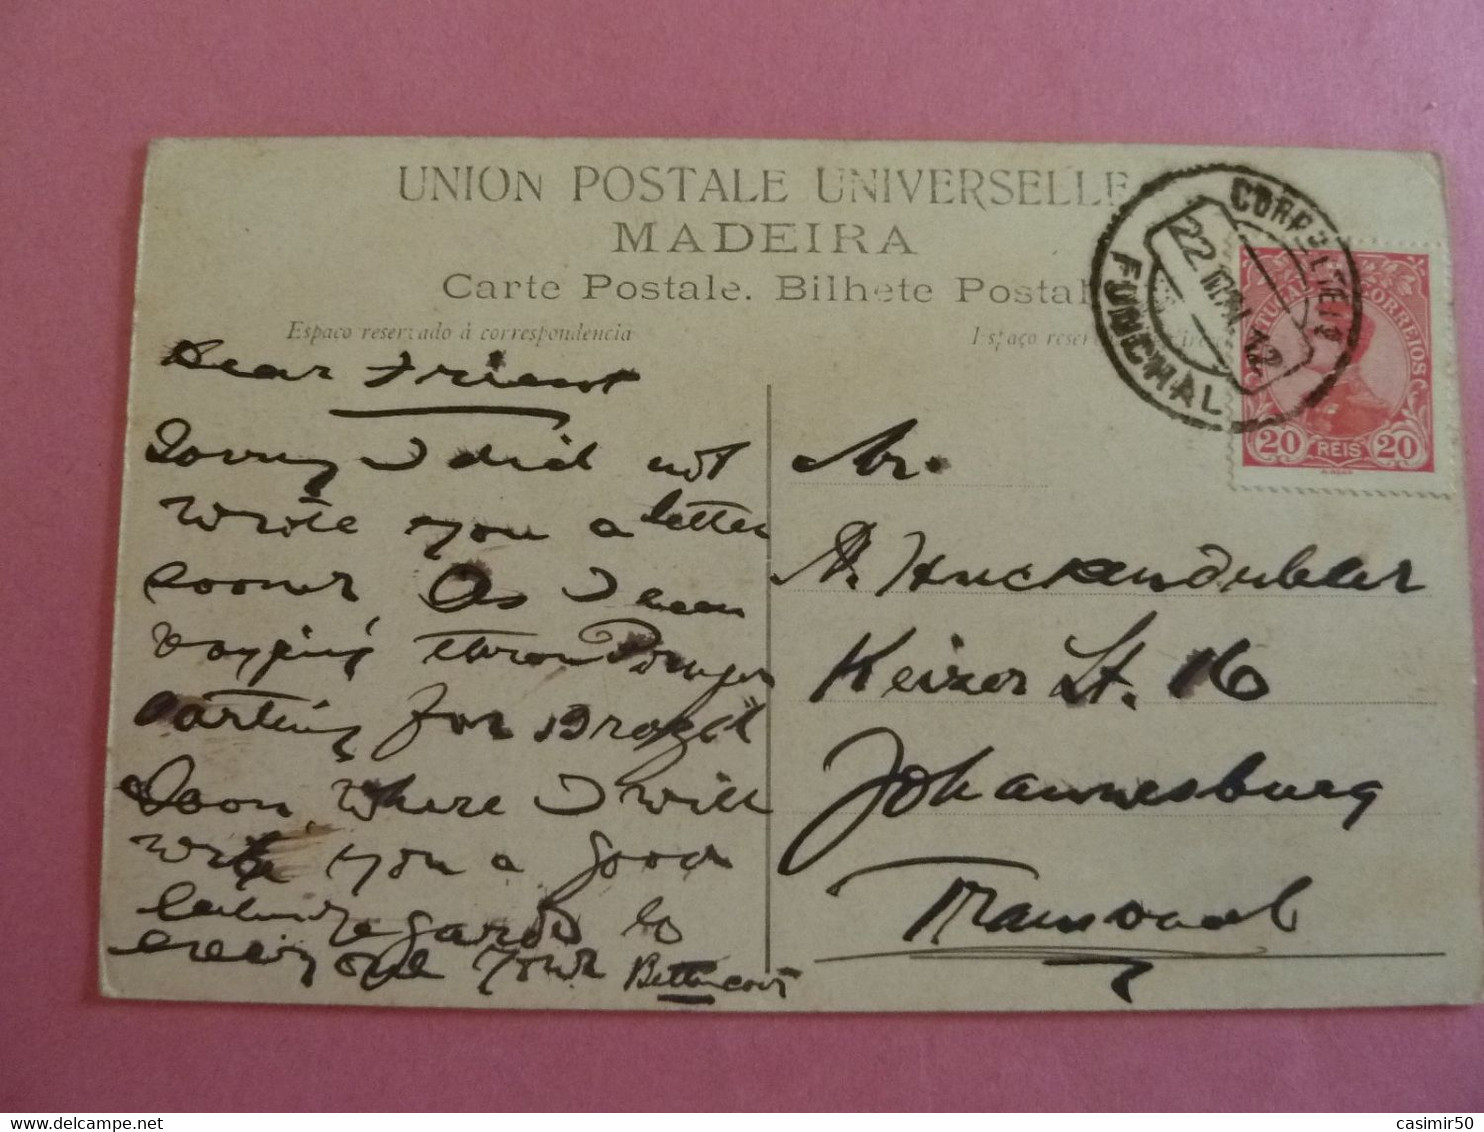 UNION POSTALE UNIVERSELLE
MADEIRA
Carte Postale. Bilhete Postal
Espaço reservado á correspondencia
Espaço reser
CORR
FUNCHAL
22 MAI 12
CORREIOS
20 REIS 20
Dear Friend
Sorry I did not
wrote you a letter
sooner As I been
for Brazil
Soon, where I will
write you a good
letter regards to
every one your Bettencourt
Mr.
A. Huckendubler
Keizer St. 16
Johannesburg
Transvaal
casimir50